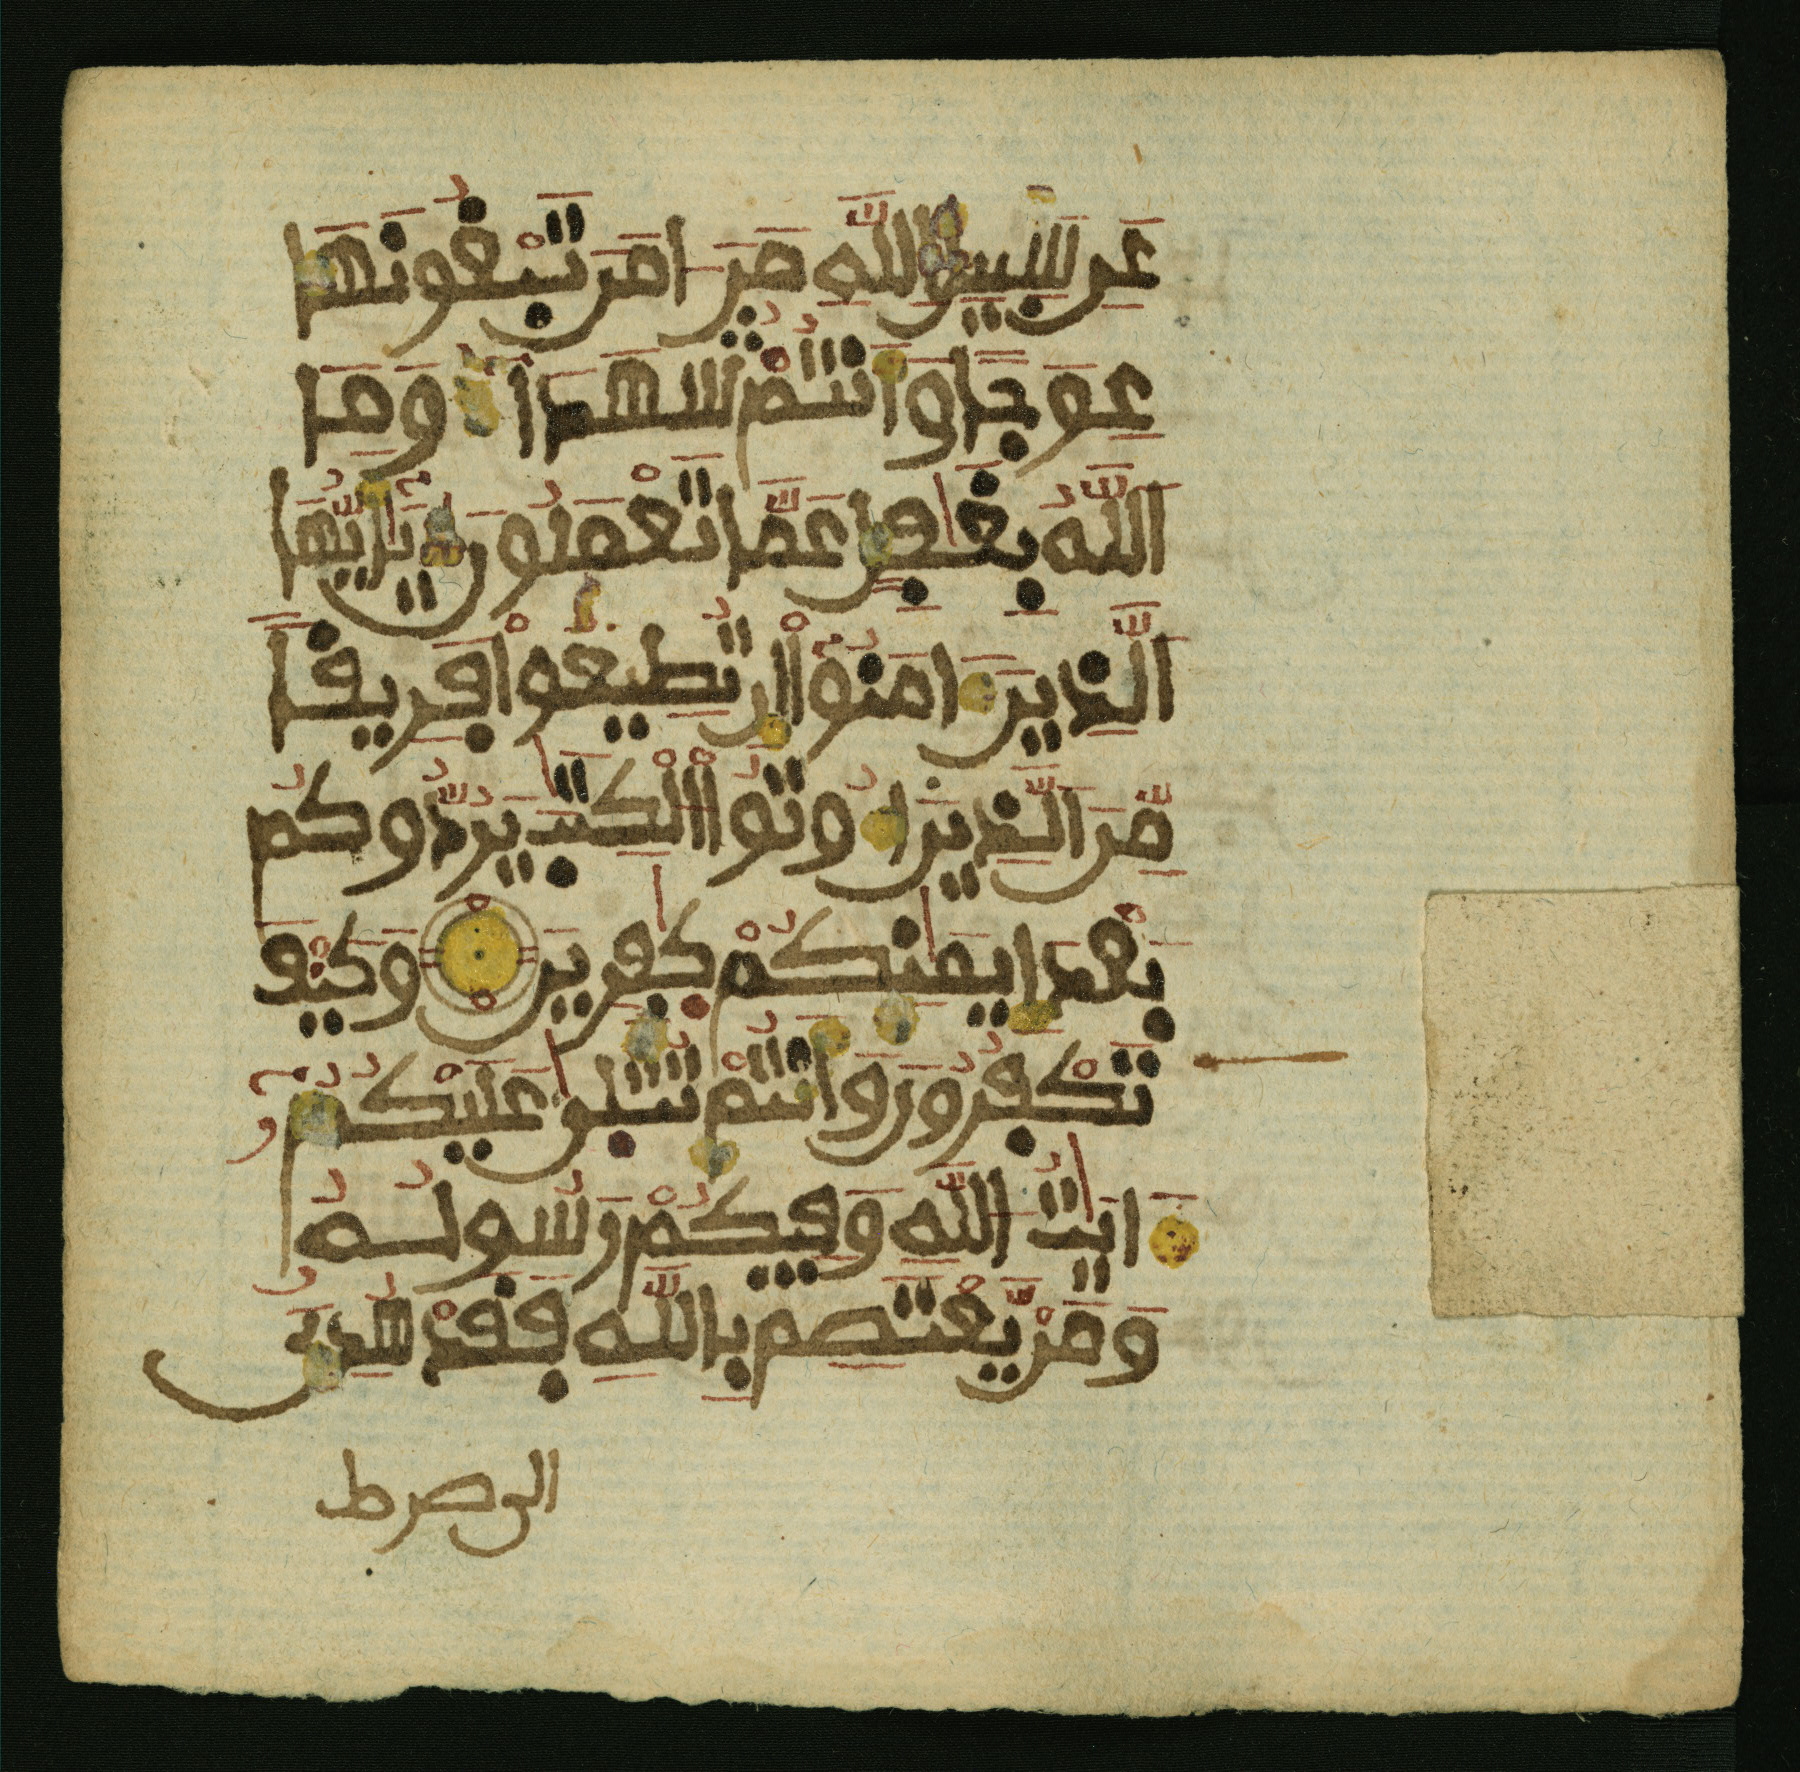 عَن سَبِيلِ اللَّهِ مَنَ امَنَ تَبْغُونَهَا
عِوَجًا وَأَنتُمْ شُهَدَآءُ وَمَا
اللَّهُ بِغَٰفِلٍ عَمَّا تَعْمَلُونَ يَٰأَيُّهَا
الَّذِينَ ءَامَنُوٓاْ إِن تُطِيعُواْ فَرِيقًا
مِّنَ الَّذِينَ أُوتُواْ الْكِتَٰبَ يَرُدُّوكُم
بَعْدَ إِيمَٰنِكُمْ كَٰفِرِينَ وَكَيْفَ
تَكْفُرُونَ وَأَنتُمْ تُتْلَىٰ عَلَيْكُمُۥٓ
ءَايَٰتُ اللَّهِ وَفِيكُمْ رَسُولُهُۥ
وَمَنْ يَّعْتَصِم بِاللَّهِ فَقَدْ هُدِيَ
الى صرط